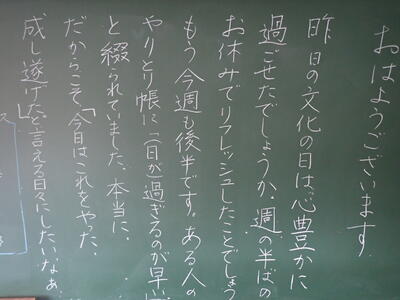 おはようございます
昨日の文化の日は、心豊かに
過ごせたでしょうか。週の半ばの
お休みでリフレッシュしたことでしょう
もう今週も後半です。ある人の
やりとり帳に「一日が過ぎるのが早い
と綴られていました。本当に。
だからこそ、「今日はこれをやった、
成し遂げた」と言える日々にしたいなぁ